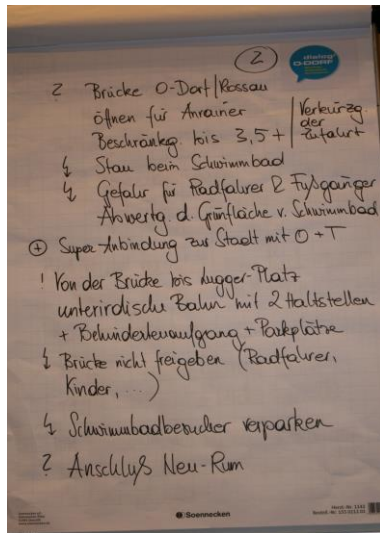 2
dialog
O-DORF
? Brücke O-Dorf/Rossau
öffnen für Anrainer
Beschränkg. bis 3,5 t
Verkürzg.
der
Zufahrt
Stau beim Schwimmbad
Gefahr für Radfahrer & Fußgänger
Abwertg. d. Grünfläche v. Schwimmbad
+ Super-Anbindung zur Stadt mit O + T
! Von der Brücke bis Lugger-Platz
unterirdische Bahn mit 2 Haltstellen
+ Behindertenaufgang + Parkplätze
Brücke nicht freigeben (Radfahrer,
Kinder, ...)
Schwimmbadbesucher verparken
? Anschluß Neu-Rum
Soennecken